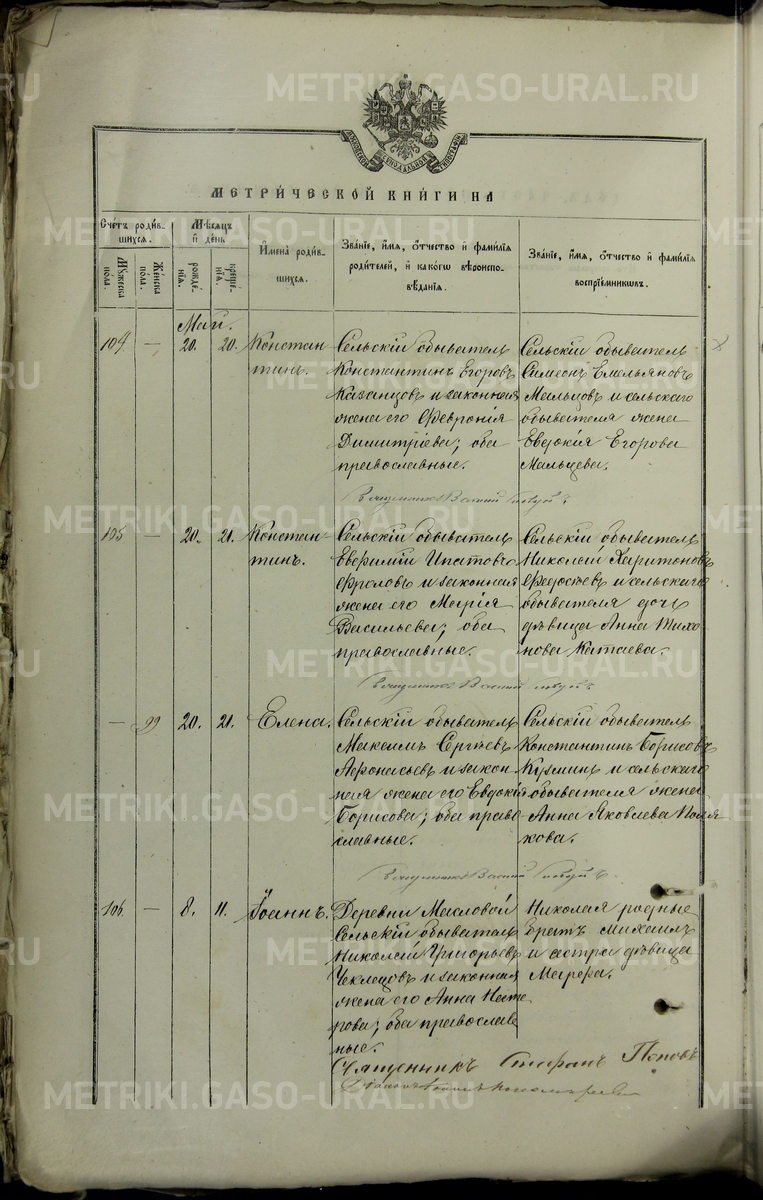 METRIKI.GASO-URAL.RU
МЕТРИ́ЧЕСКОЙ КНИ́ГИ НА
Сче́тъ роди́в-
шихся.
Мꙋ́жеска
пола.
Же́нска
пола.
Мѣ́сяцъ
и҆ де́нь
рожде́-
нїя.
креще́-
нїя.
И҆мена̀ роди́в-
шихся.
Зва́нїе, и҆́мя, ѻ҆́тчество и҆ фами́лїѧ
роди́телей, и҆ како́гѡ вѣроиспо-
вѣ́данїѧ.
Зва́нїе, и҆́мя, ѻ҆́тчество и҆ фами́лїѧ
воспрїе́мникѡвъ.
Май.
104 — 20. 20. Констан
тинъ.
Сельскій обыватель
Константинъ Егоровъ
Казанцовъ и законная
жена его Феврония
Димитріева; оба
православные.
Сельскій обыватель
Симеонъ Емельяновъ
Мальцовъ и сельскаго
обывателя жена
Евдокія Егорова
Мальцева.
105 — 20. 21. Констан-
тинъ.
Сельскій обыватель
Евфимій Ипатовъ
Фроловъ и законная
жена его Марія
Васильева; оба
православные.
Сельскій обыватель
Николай Харитоновъ
Федостьевъ и сельскаго
обывателя дочь
дѣвица Анна Тихо
нова Катаева.
— 99 20. 21. Елена.
Сельскій обыватель
Максимъ Сергѣевъ
Афонасьевъ и закон
ная жена его Евдокія
Борисова; оба право
славные.
Сельскій обыватель
Константинъ Борисовъ
Кузминъ и сельскаго
обывателя жена
Анна Яковлева Поля
кова.
106. — 8. 11. Іоаннъ.
Деревни Масловой
Сельскій обыватель
Николай Григорьевъ
Чеклецовъ и законная
жена его Анна Назе
рова; оба православ
ные.
Николая родные
братъ Михаилъ
и сестра дѣвица
Марѳа.
Священникъ Стефанъ Поповъ